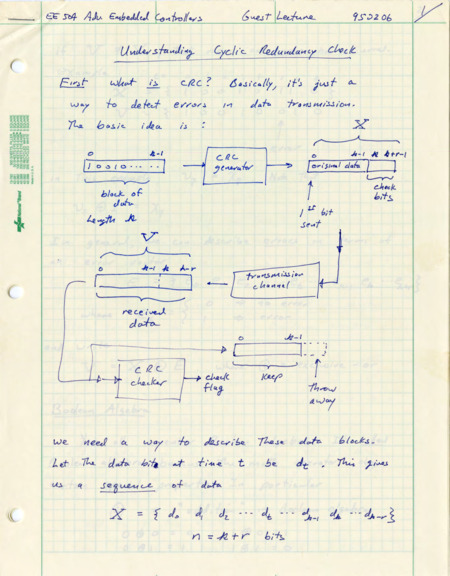 EE 504 Adv Embedded Controllers Guest Lecture 950206 1/
Understanding Cyclic Redundancy Check
First what is CRC? Basically, it's just a
way to detect errors in data transmission.
The basic idea is :
X
0 k-1
1 0 0 1 0 ... ..
block of
data
Length k
CRC
generator
0 k-1 k k+r-1
original data
check
bits
1st bit
sent
V
0 k-1 k k-r
received
data
transmission
channel
CRC
checker
check
flag
0 k-1
keep
Throw
away
we need a way to describe These data blocks.
Let The data bits at time t be dt. This gives
us a sequence of data
X = { d0 d1 d2 ... dt ... dk-1 dk ... dk-r }
n = k+r bits